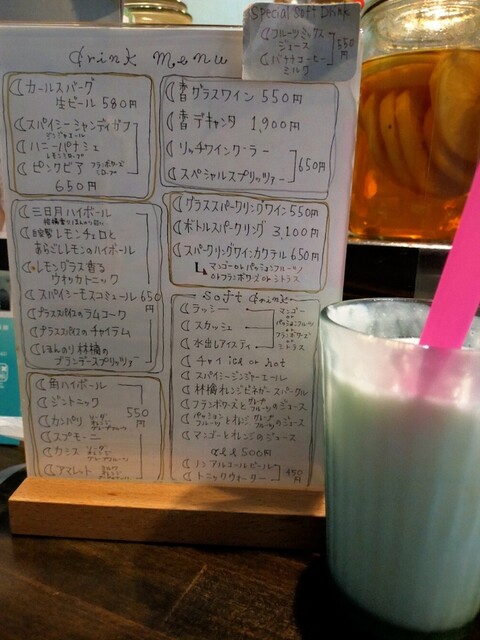 Special Soft Drink
フルーツミックス
ジュース
バナナコーヒー
ミルク
550円
drink menu
カールスバーグ
生ビール 580円
スパイシーシャンディガフ
ハニーパナシェ
ピンクビア
650円
グラスワイン 550円
デキャンタ 1,900円
リッチワインクーラー
スペシャルスプリッツァー
650円
三日月ハイボール
自家製レモンチェロと
あらごしレモンのハイボール
レモングラス香る
ウォッカトニック
スパイシーモスコミュール 650円
グラススパイスのラムコーク
のチャイラム
ほんのり林檎の
ブランデースプリッツァー
グラススパークリングワイン 550円
ボトルスパークリング 3,100円
スパークリングワインカクテル 650円
マンゴー or パッションフルーツ
or フランボワーズ or シトラス
soft drink
ラッシー
スカッシュ
水出しアイスティ
マンゴー
or
パッションフルーツ
or
フランボワーズ
or
シトラス
チャイ ice or hot
スパイシージンジャーエール
林檎オレンジビネガースパークル
フランボワーズとグレープフルーツのジュース
パッションフルーツとオレンジ グレープフルーツのジュース
マンゴーとオレンジのジュース
all 500円
ノンアルコールビール
トニックウォーター
450円
角ハイボール
ジントニック
カンパリ
スプモーニ
カシス
アマレット
550円